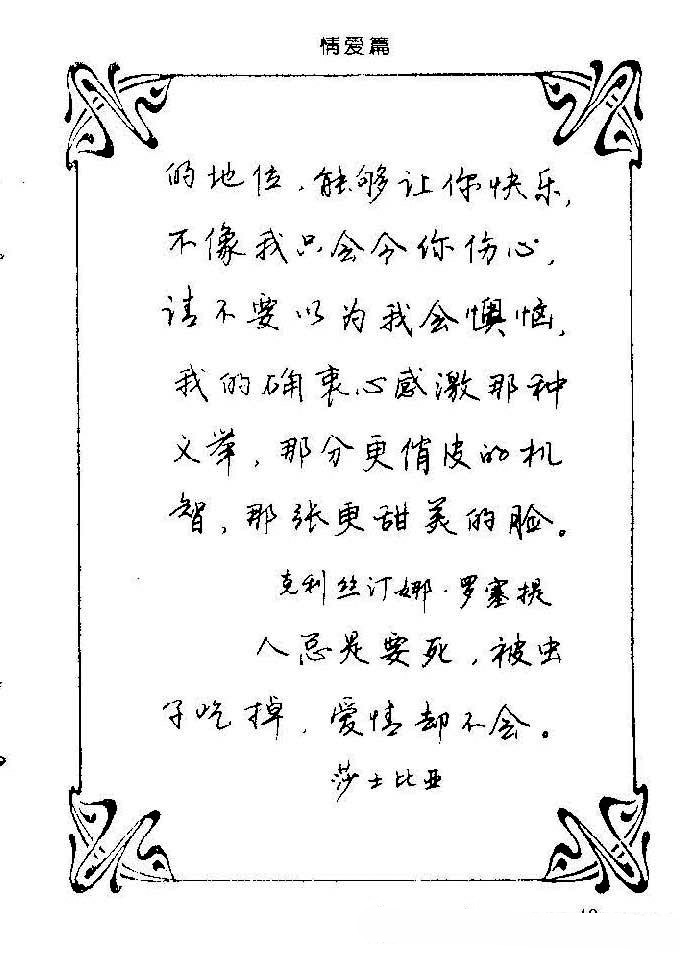 情爱篇
的地位，能够让你快乐，
不像我只会令你伤心，
请不要以为我会懊恼，
我的确衷心感激那种
义举，那分更俏皮的机
智，那张更甜美的脸。
克利丝汀娜·罗塞提
人总是要死，被虫
子吃掉，爱情却不会。
莎士比亚